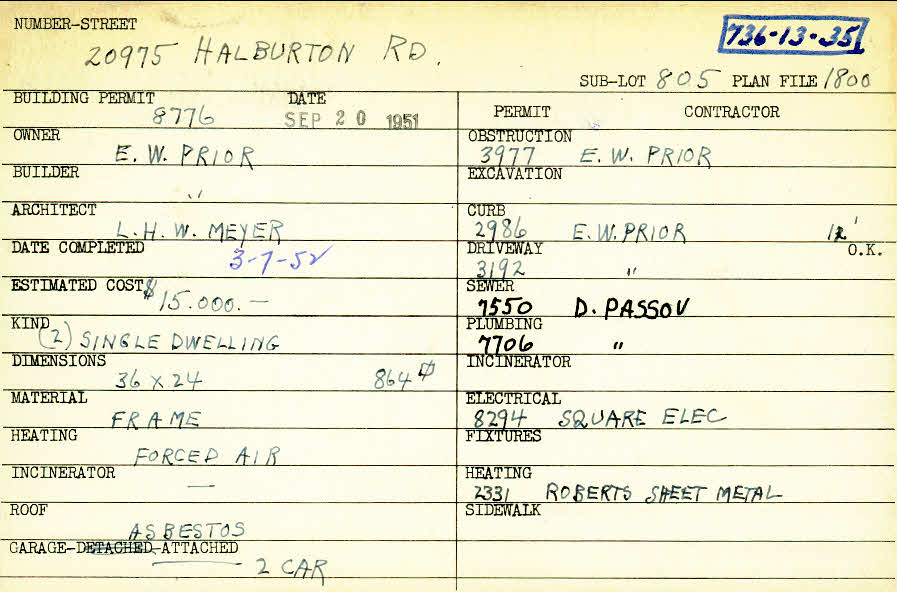 NUMBER-STREET
20975 HALBURTON RD.
736-13-35
SUB-LOT 805 PLAN FILE 1800
BUILDING PERMIT DATE
8776 SEP 20 1951
PERMIT CONTRACTOR
OWNER
E. W. PRIOR
OBSTRUCTION
3977 E. W. PRIOR
BUILDER
"
EXCAVATION
ARCHITECT
L. H. W. MEYER
CURB
2986 E. W. PRIOR 12'
DATE COMPLETED
3-7-52
DRIVEWAY O.K.
3192 "
ESTIMATED COST $15.000.—
SEWER
7550 D. PASSOV
KIND
(2) SINGLE DWELLING
PLUMBING
7706 "
DIMENSIONS
36 x 24 864 ⌀
INCINERATOR
MATERIAL
FRAME
ELECTRICAL
8294 SQUARE ELEC
HEATING
FORCED AIR
FIXTURES
INCINERATOR
—
HEATING
2331 ROBERTS SHEET METAL
ROOF
ASBESTOS
SIDEWALK
GARAGE-DETACHED-ATTACHED
2 CAR